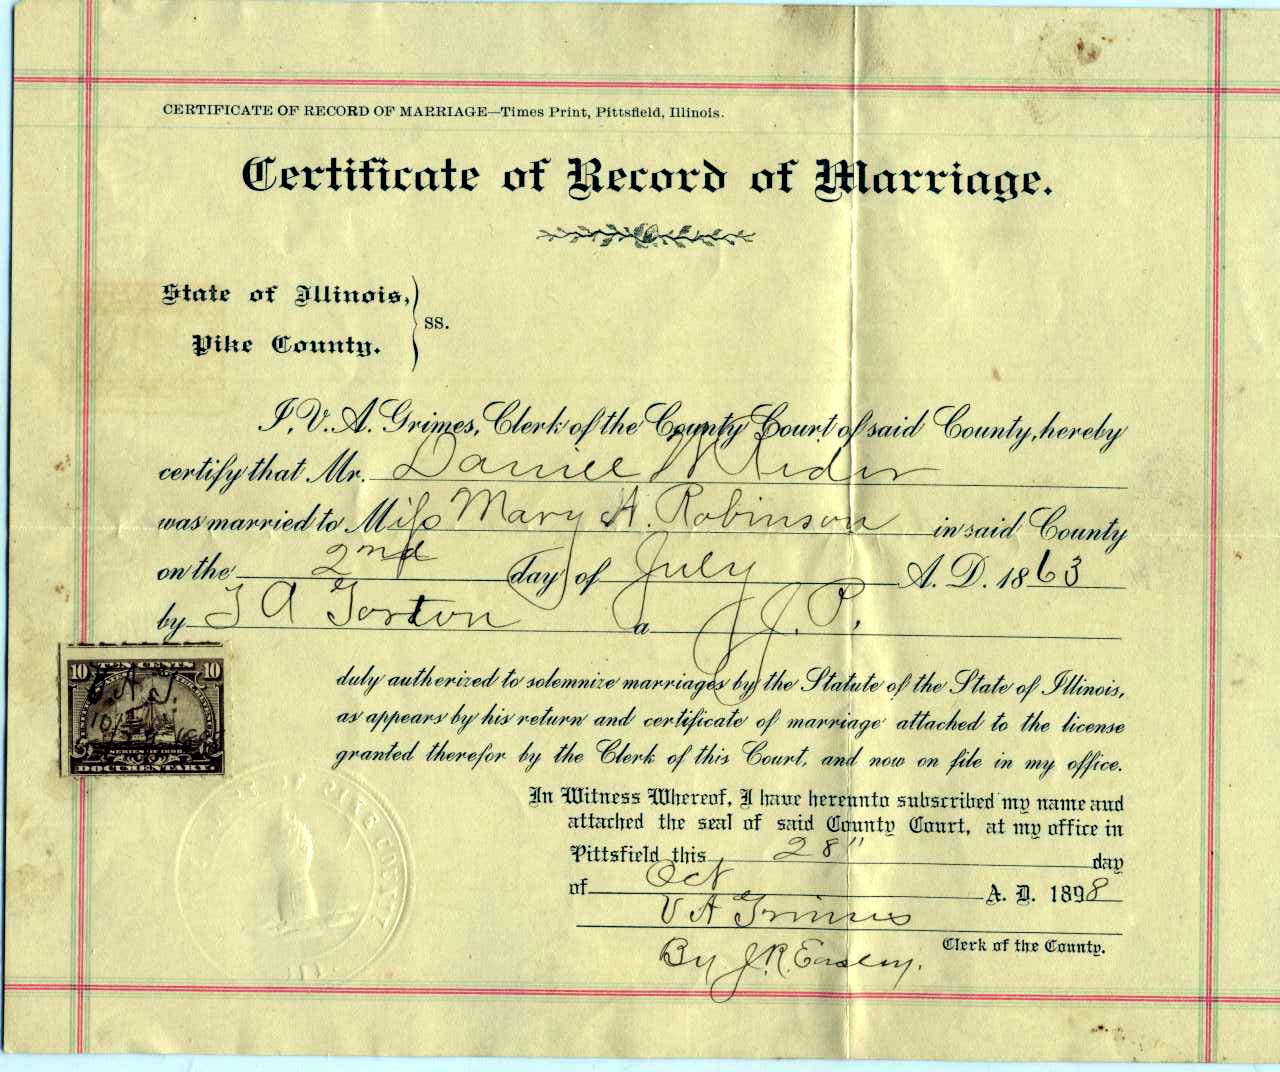 CERTIFICATE OF RECORD OF MARRIAGE—Times Print, Pittsfield, Illinois.
Certificate of Record of Marriage.
State of Illinois,
Pike County.
ss.
I, V. A. Grimes, Clerk of the County Court of said County, hereby
certify that Mr. Daniel W Rider
was married to Miss Mary A. Robinson in said County
on the 2nd day of July A. D. 1863
by T A Gorton a J. P.
duly autherized to solemnize marriages by the Statute of the State of Illinois,
as appears by his return and certificate of marriage attached to the license
granted therefor by the Clerk of this Court, and now on file in my office.
In Witness Whereof, I have hereunto subscribed my name and
attached the seal of said County Court, at my office in
Pittsfield this 28" day
of Oct A. D. 1898
V A Grimes
Clerk of the County.
By J. R. Easley.
TEN CENTS
10 10
SERIES OF 1898
DOCUMENTARY.
PIKE COUNTY
ILL